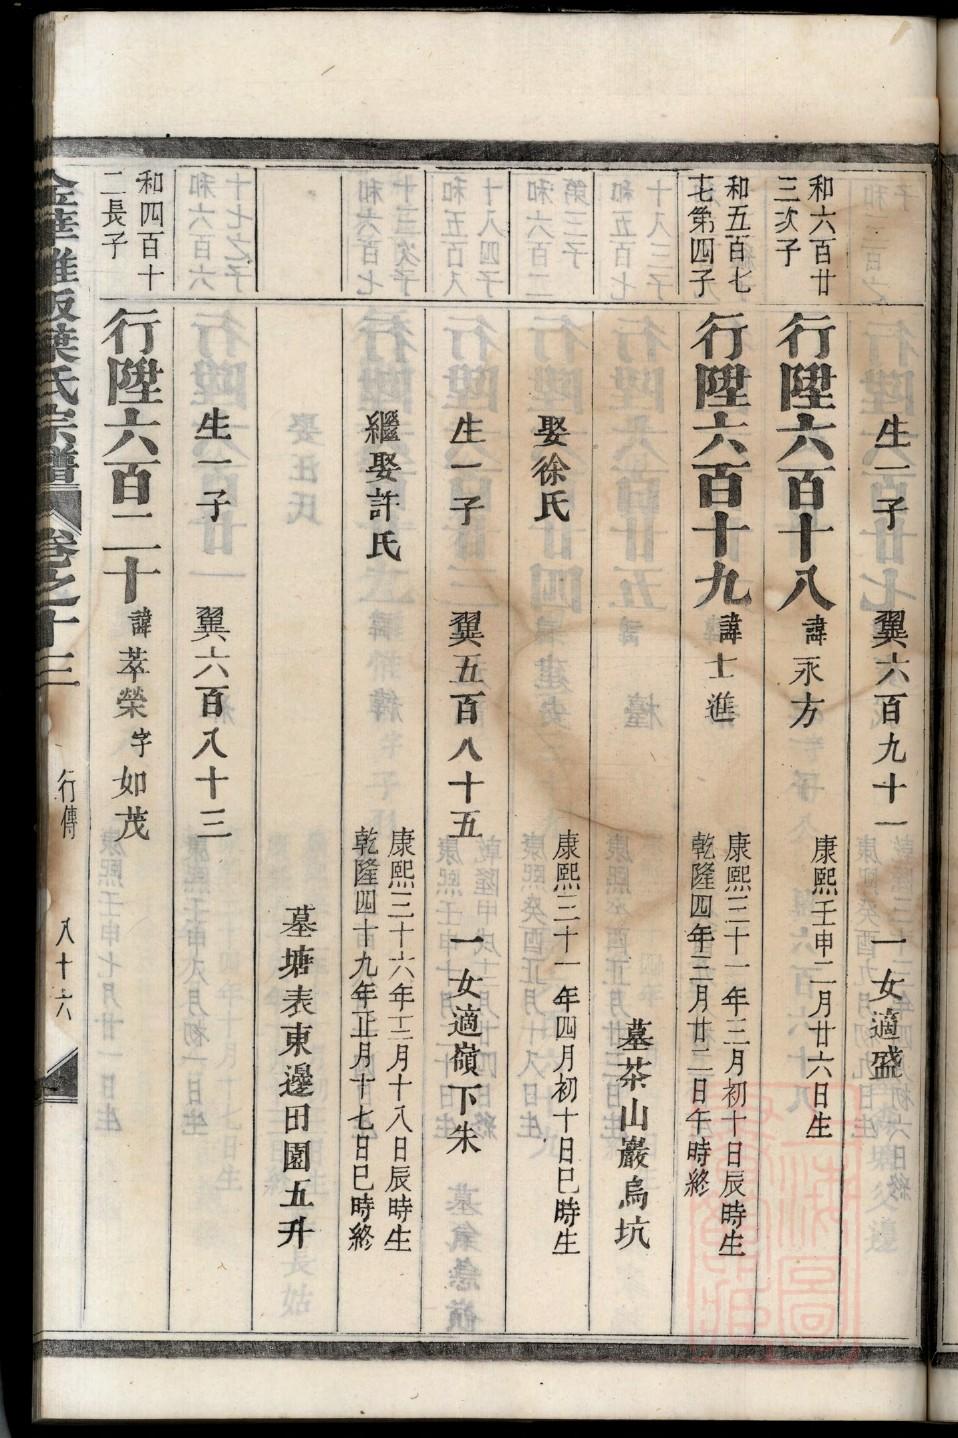 生一子 翼六百九十一 一女適盛
和六百廿三次子
行陞六百十八 諱永方 康熙壬申二月廿六日生
和五百七七第四子
行陞六百十九 諱士進 康熙三十一年三月初十日辰時生
乾隆四年三月廿二日午時終
墓茶山巖烏坑
娶徐氏 康熙三十一年四月初十日巳時生
生一子 翼五百八十五 一女適嶺下朱
繼娶許氏 康熙三十六年三月十八日辰時生
乾隆四十九年正月十七日巳時終
墓塘表東邊田園五升
生一子 翼六百八十三
和四百十二長子
行陞六百二十 諱萃榮 字如茂
葉氏宗譜 卷之十三 行傳 八十六